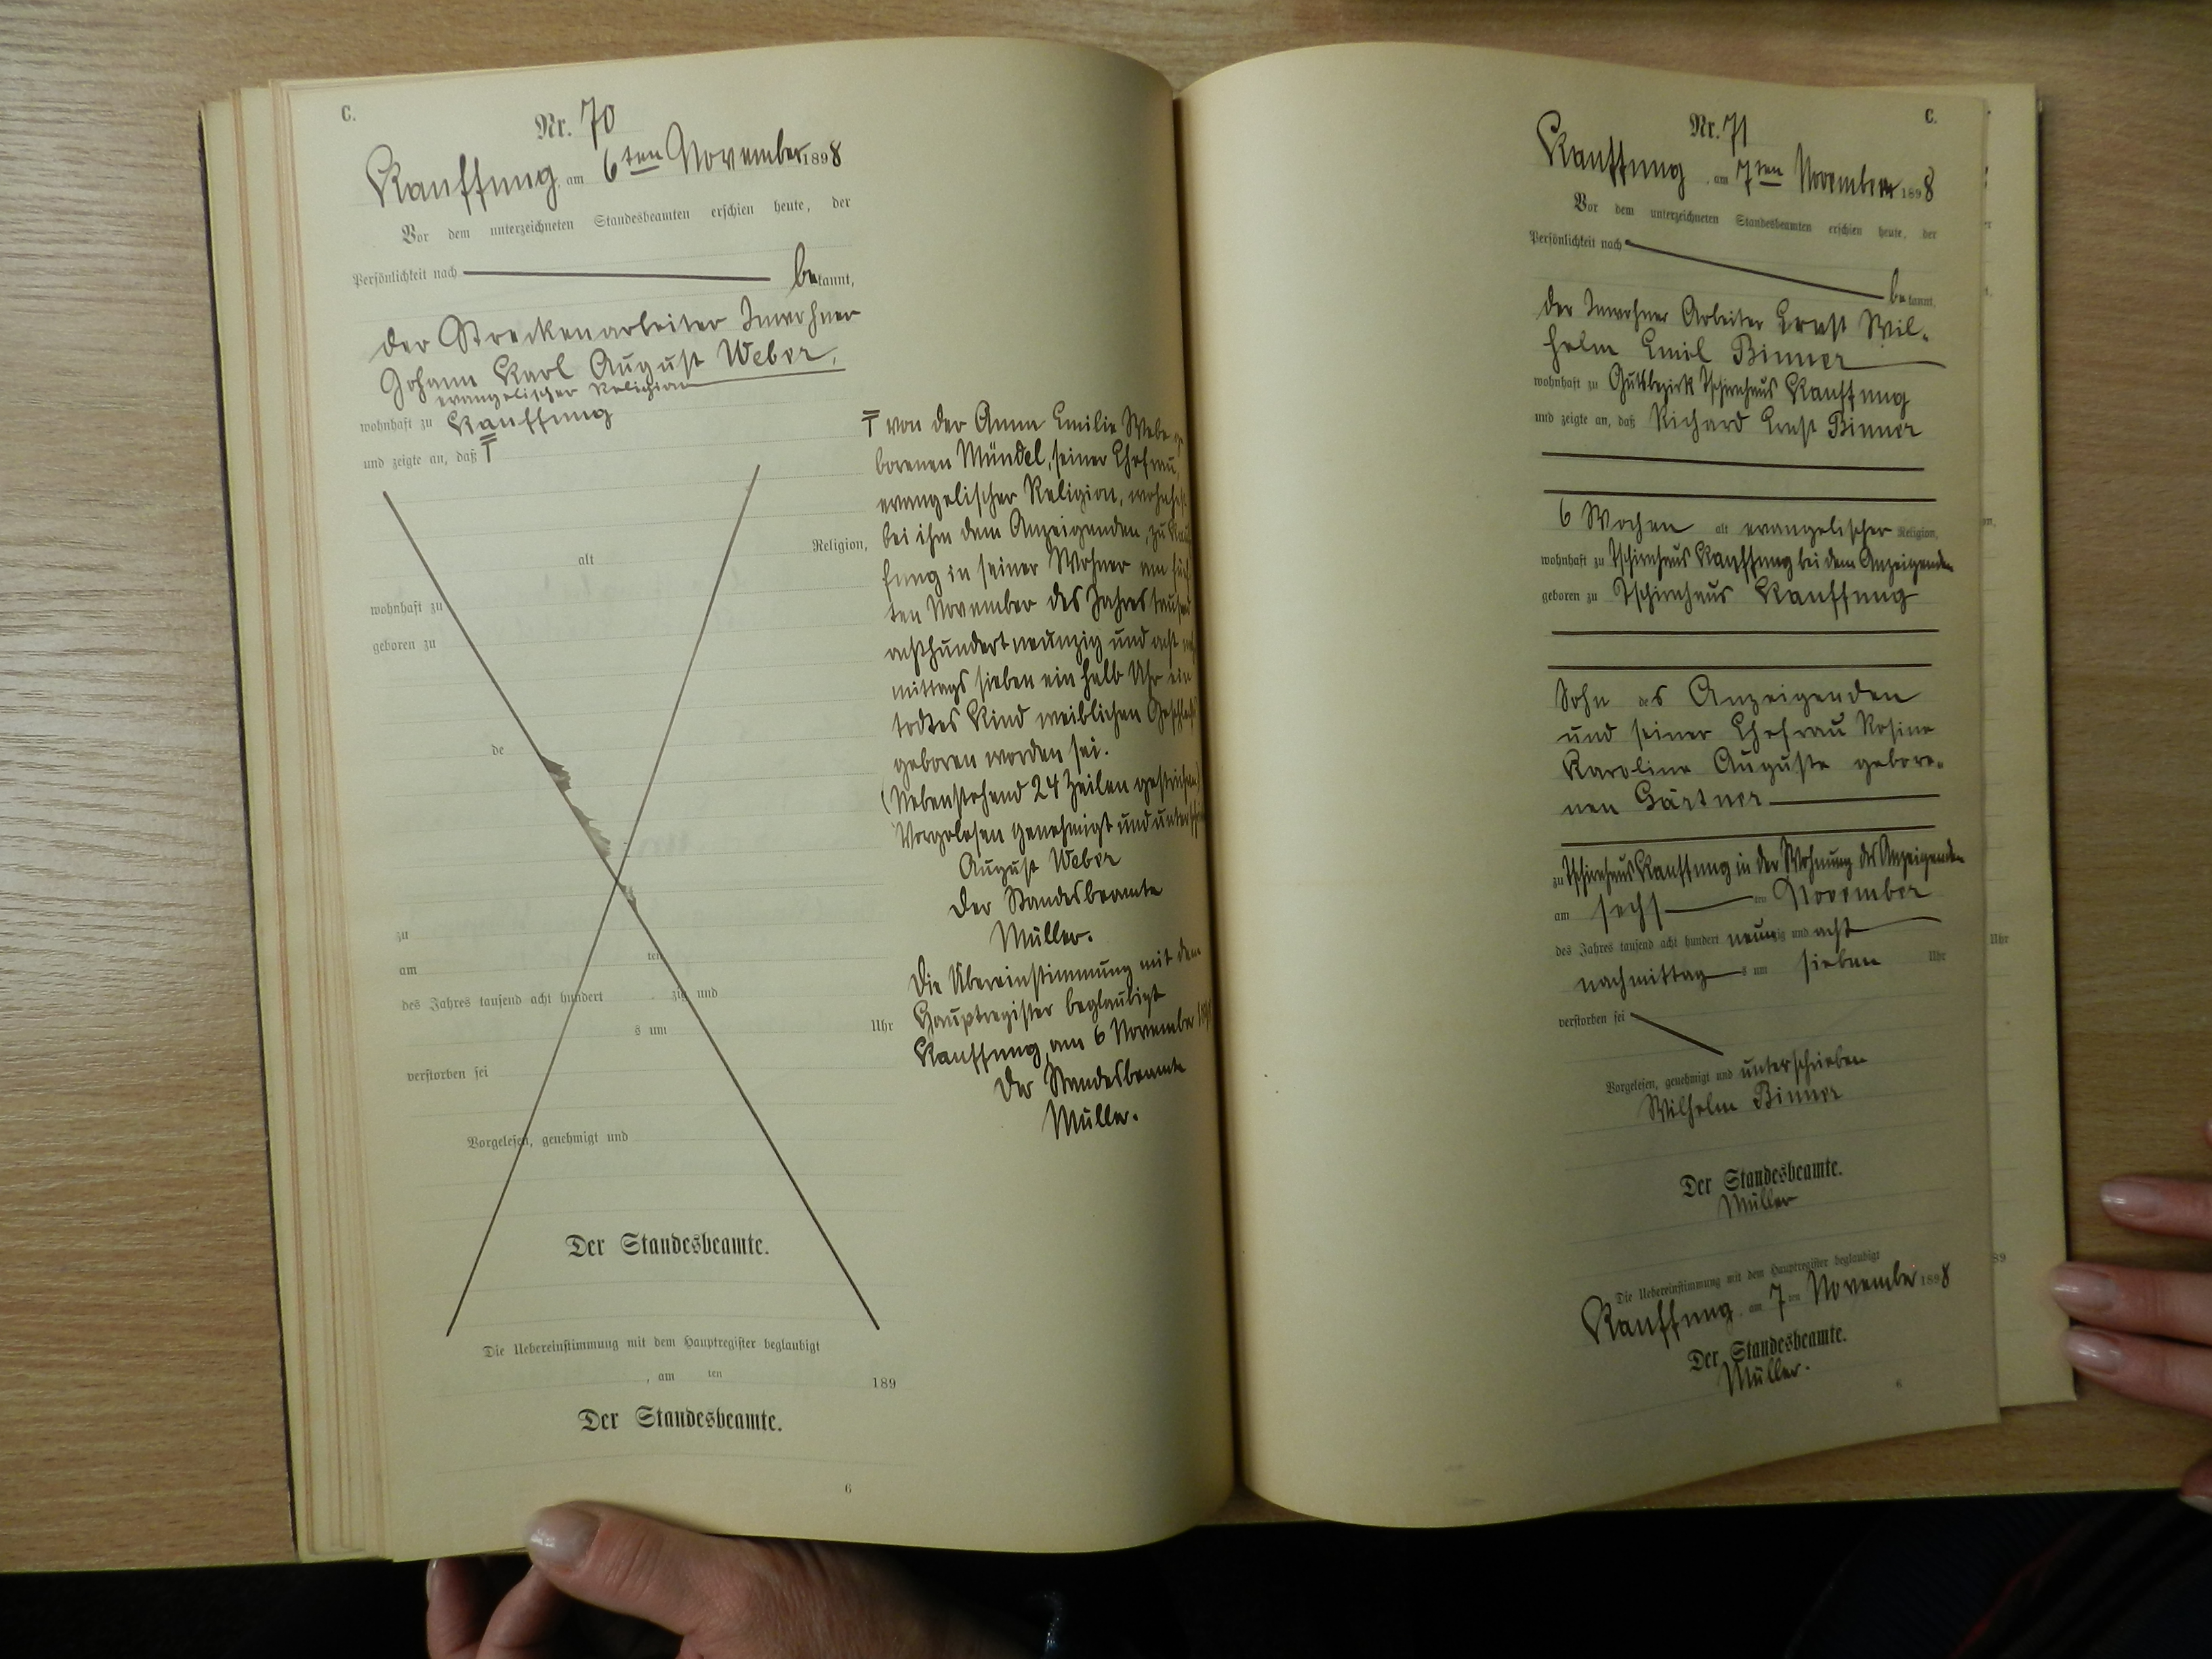 C.
Nr. 70
Kauffung, am 6ten November 1898
Vor dem unterzeichneten Standesbeamten erschien heute, der
Persönlichkeit nach bekannt,
der Streckenarbeiter Inwohner
Johann Karl August Weber,
evangelischer Religion
wohnhaft zu Kauffung
und zeigte an, daß
alt Religion,
wohnhaft zu
geboren zu
de
zu
am ten
des Jahres tausend acht hundert zig und
s um Uhr
verstorben sei
Vorgelesen, genehmigt und
Der Standesbeamte.
Die Uebereinstimmung mit dem Hauptregister beglaubigt
, am ten 189
Der Standesbeamte.
6
von der Anna Emilie Weber
borenen Mündel, seiner Ehefrau,
evangelischer Religion, wohnhaft
bei ihm dem Anzeigenden, zu Kauf
fung in seiner Wohner am
ten November des Jahres tausend
achthundert neunzig und acht
mittags sieben ein halb Uhr ein
todtes Kind weiblichen Geschlechts
geboren worden sei.
(Nebenstehend 24 Zeilen gestrichen)
Vorgelesen genehmigt und
August Weber
Der Standesbeamte
Müller.
Die Übereinstimmung mit dem
Hauptregister beglaubigt
Kauffung am 6 November
Der Standesbeamte
Müller.
C.
Nr. 71
Kauffung, am 7ten November 1898
Vor dem unterzeichneten Standesbeamten erschien heute, der
Persönlichkeit nach bekannt,
der Inwohner Arbeiter Ernst Wil-
helm Emil Binner
wohnhaft zu Gutsbezirk Tschirnhaus Kauffung
und zeigte an, daß Richard Ernst Binner
6 Wochen alt evangelischer Religion,
wohnhaft zu Tschirnhaus Kauffung bei dem Anzeigenden
geboren zu Tschirnhaus Kauffung
Sohn des Anzeigenden
und seiner Ehefrau Rosine
Karoline Auguste gebore-
nen Gärtner
zu Tschirnhaus Kauffung in der Wohnung des Anzeigenden
am sechs ten November
des Jahres tausend acht hundert neunzig und acht
nachmittag s um sieben Uhr
verstorben sei
Vorgelesen, genehmigt und unterschrieben
Wilhelm Binner
Der Standesbeamte.
Müller
Die Uebereinstimmung mit dem Hauptregister beglaubigt
Kauffung, am 7ten November 1898
Der Standesbeamte.
Müller.
6
Uhr
89